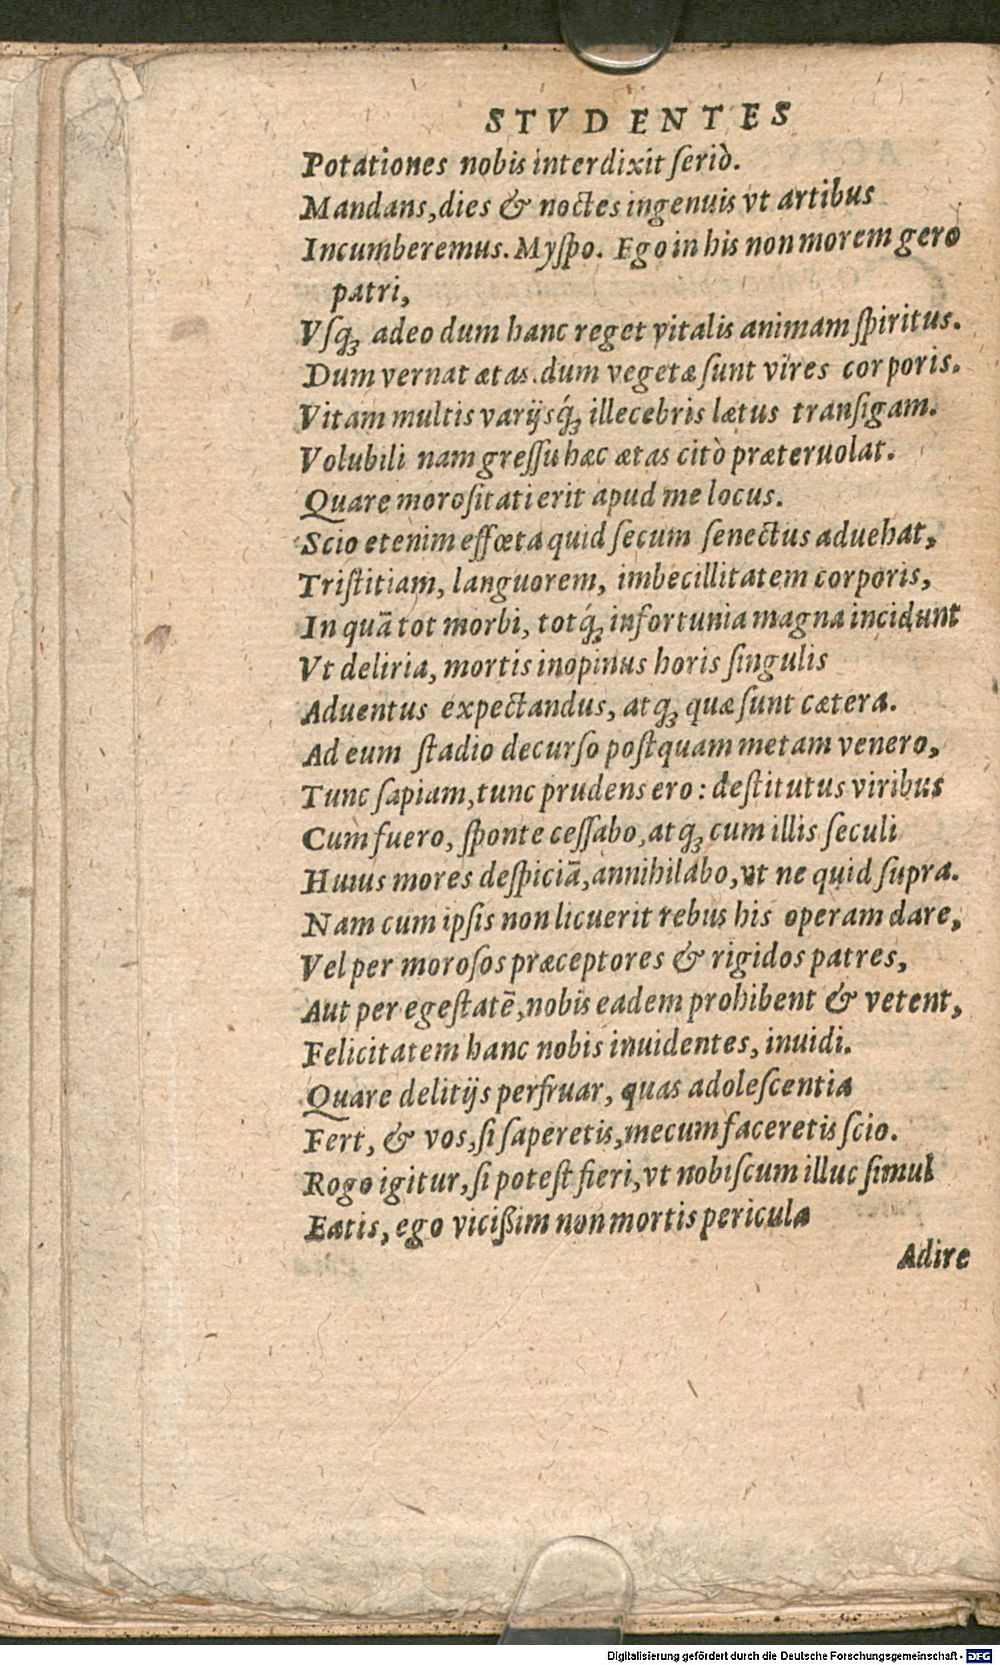 STVDENTES
Potationes nobis interdixit ſeriò.
Mandans, dies & noctes ingenuis vt artibus
Incumberemus. Myſpo. Ego in his non morem gero
patri,
Vſq́ꝫ adeo dum hanc reget vitalis animam ſpiritus.
Dum vernat ætas. dum vegetæ ſunt vires corporis.
Vitam multis varijsq́ꝫ illecebris lætus tranſigam.
Volubili nam greſſu hæc ætas citò præteruolat.
Quare moroſitati erit apud me locus.
Scio etenim effœta quid ſecum ſenectus aduehat,
Triſtitiam, languorem, imbecillitatem corporis,
In quā tot morbi, totq́ꝫ infortunia magna incidunt
Vt deliria, mortis inopinus horis ſingulis
Aduentus expectandus, atqꝫ quæ ſunt cætera.
Ad eum ſtadio decurſo poſtquam metam venero,
Tunc ſapiam, tunc prudens ero: deſtitutus viribus
Cum fuero, ſponte ceſſabo, atqꝫ cum illis ſeculi
Huius mores deſpiciā, annihilabo, vt ne quid ſupra.
Nam cum ipſis non licuerit rebus his operam dare,
Vel per moroſos præceptores & rigidos patres,
Aut per egeſtatē, nobis eadem prohibent & vetent,
Felicitatem hanc nobis inuidentes, inuidi.
Quare delitijs perfruar, quas adoleſcentia
Fert, & vos, ſi ſaperetis, mecum faceretis ſcio.
Rogo igitur, ſi poteſt fieri, vt nobiſcum illuc ſimul
Eatis, ego vicißim non mortis pericula
Adire
Digitalisierung gefördert durch die Deutsche Forschungsgemeinschaft - DFG